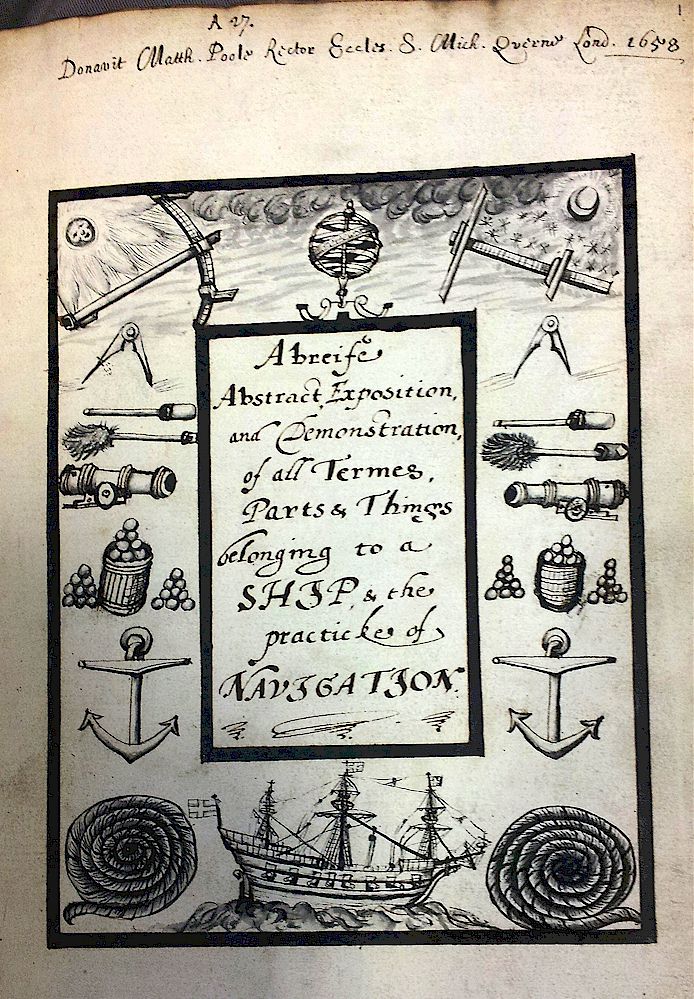 A 27.
1
Donavit Matth. Poole Rector Eccles. S. Mich. Querne Lond. 1658
A breife
Abstract, Exposition,
and Demonstration,
of all Termes,
Parts & Things
belonging to a
SHIP, & the
practicke of
NAVIGATION.